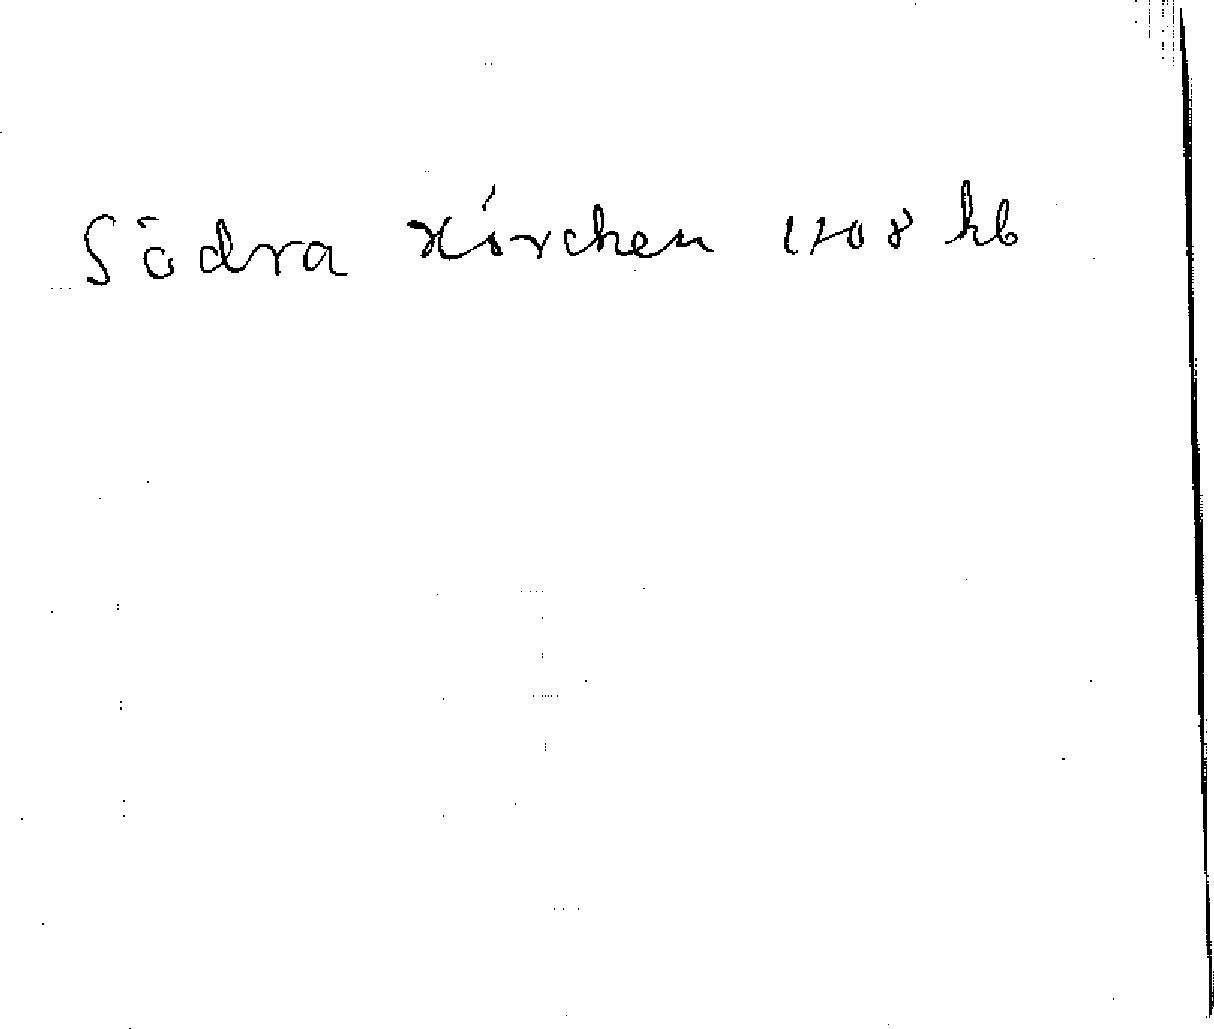 Södra Körchen 1708 hb